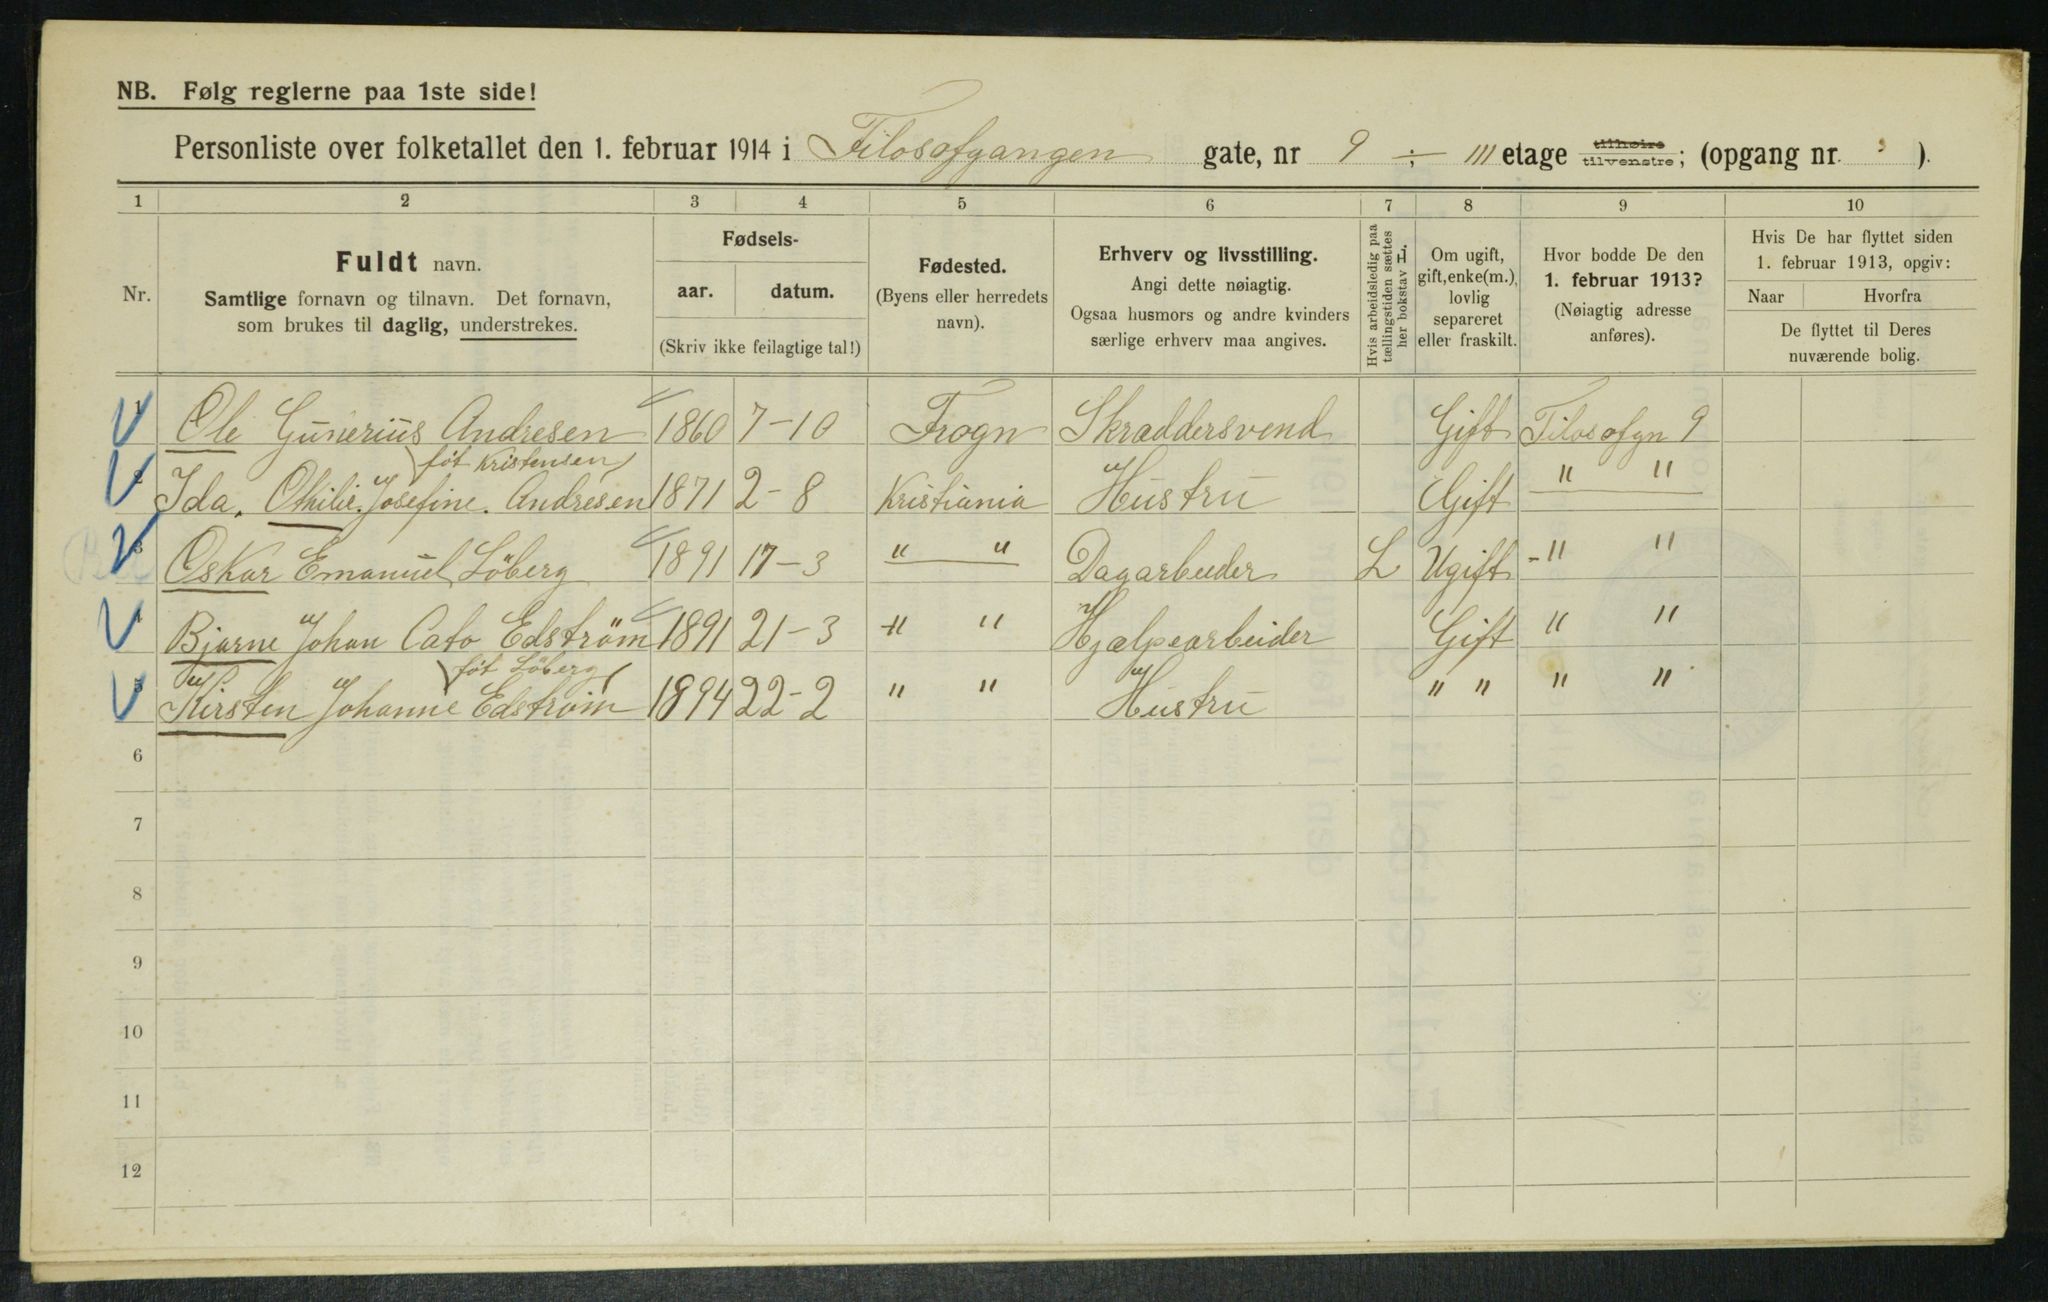 NB. Følg reglerne paa 1ste side!
Personliste over folketallet den 1. februar 1914 i Filosofgangen gate, nr 9 ; III etage tilhøire tilvenstre; (opgang nr. ).
1 2 3 4 5 6 7 8 9 10
Nr.
Fuldt navn.
Samtlige fornavn og tilnavn. Det fornavn,
som brukes til daglig, understrekes.
Fødsels-
aar. datum.
(Skriv ikke feilagtige tal!)
Fødested.
(Byens eller herredets
navn).
Erhverv og livsstilling.
Angi dette nøiagtig.
Ogsaa husmors og andre kvinders
særlige erhverv maa angives.
Hvis arbeidsledig paa
tællingstiden sættes
her bokstav L.
Om ugift,
gift, enke(m.),
lovlig
separeret
eller fraskilt.
Hvor bodde De den
1. februar 1913?
(Nøiagtig adresse
anføres).
Hvis De har flyttet siden
1. februar 1913, opgiv:
Naar Hvorfra
De flyttet til Deres
nuværende bolig.
1 Ole Gunerius Andresen 1860 7-10 Frogn Skraddersvend Gift Filosofgn 9
føt Kristensen
2 Ida. Othilie. Josefine. Andresen 1871 2-8 Kristiania Hustru Gift " "
3 Oskar Emanuel Löberg 1891 17-3 " " Dagarbeider L Ugift -" "
4 Bjarne Johan Cato Edström 1891 21-3 -" " Hjælpearbeider Gift " "
føt Löberg
5 Kirsten Johanne Edström 1894 22-2 " " Hustru " " " "
6
7
8
9
10
11
12